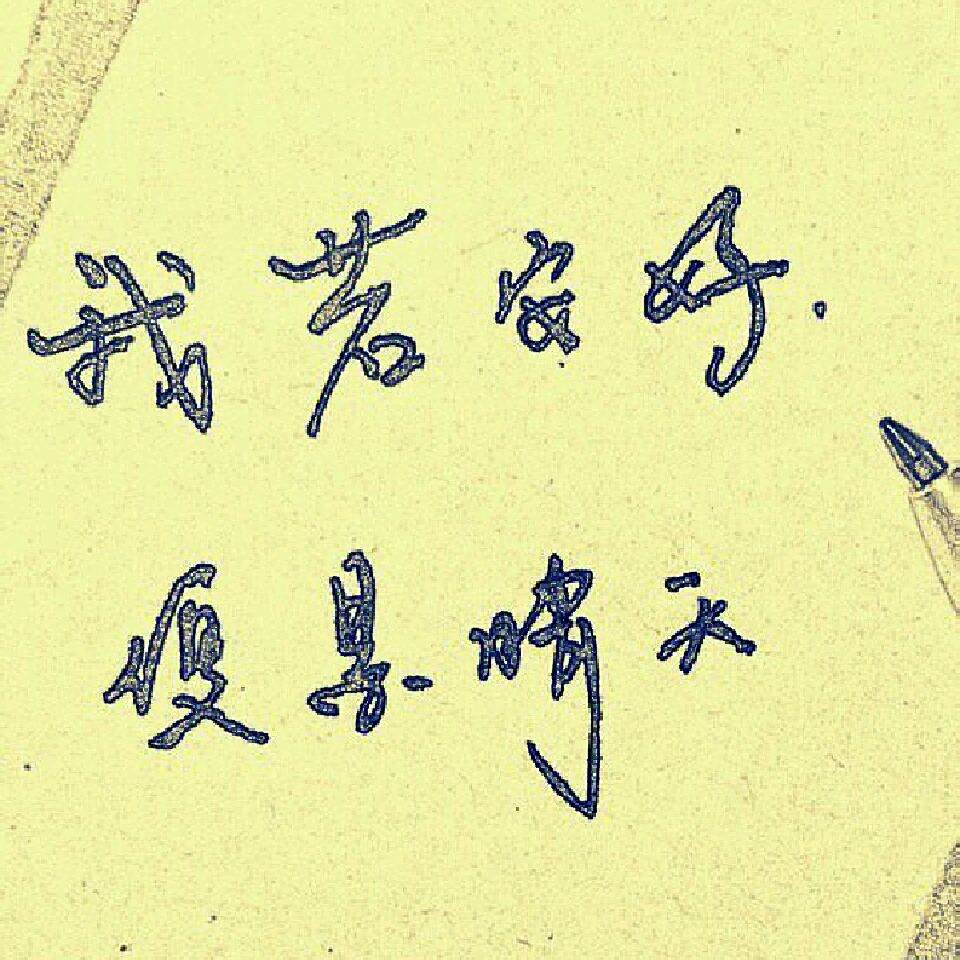 我若安好.
便是晴天